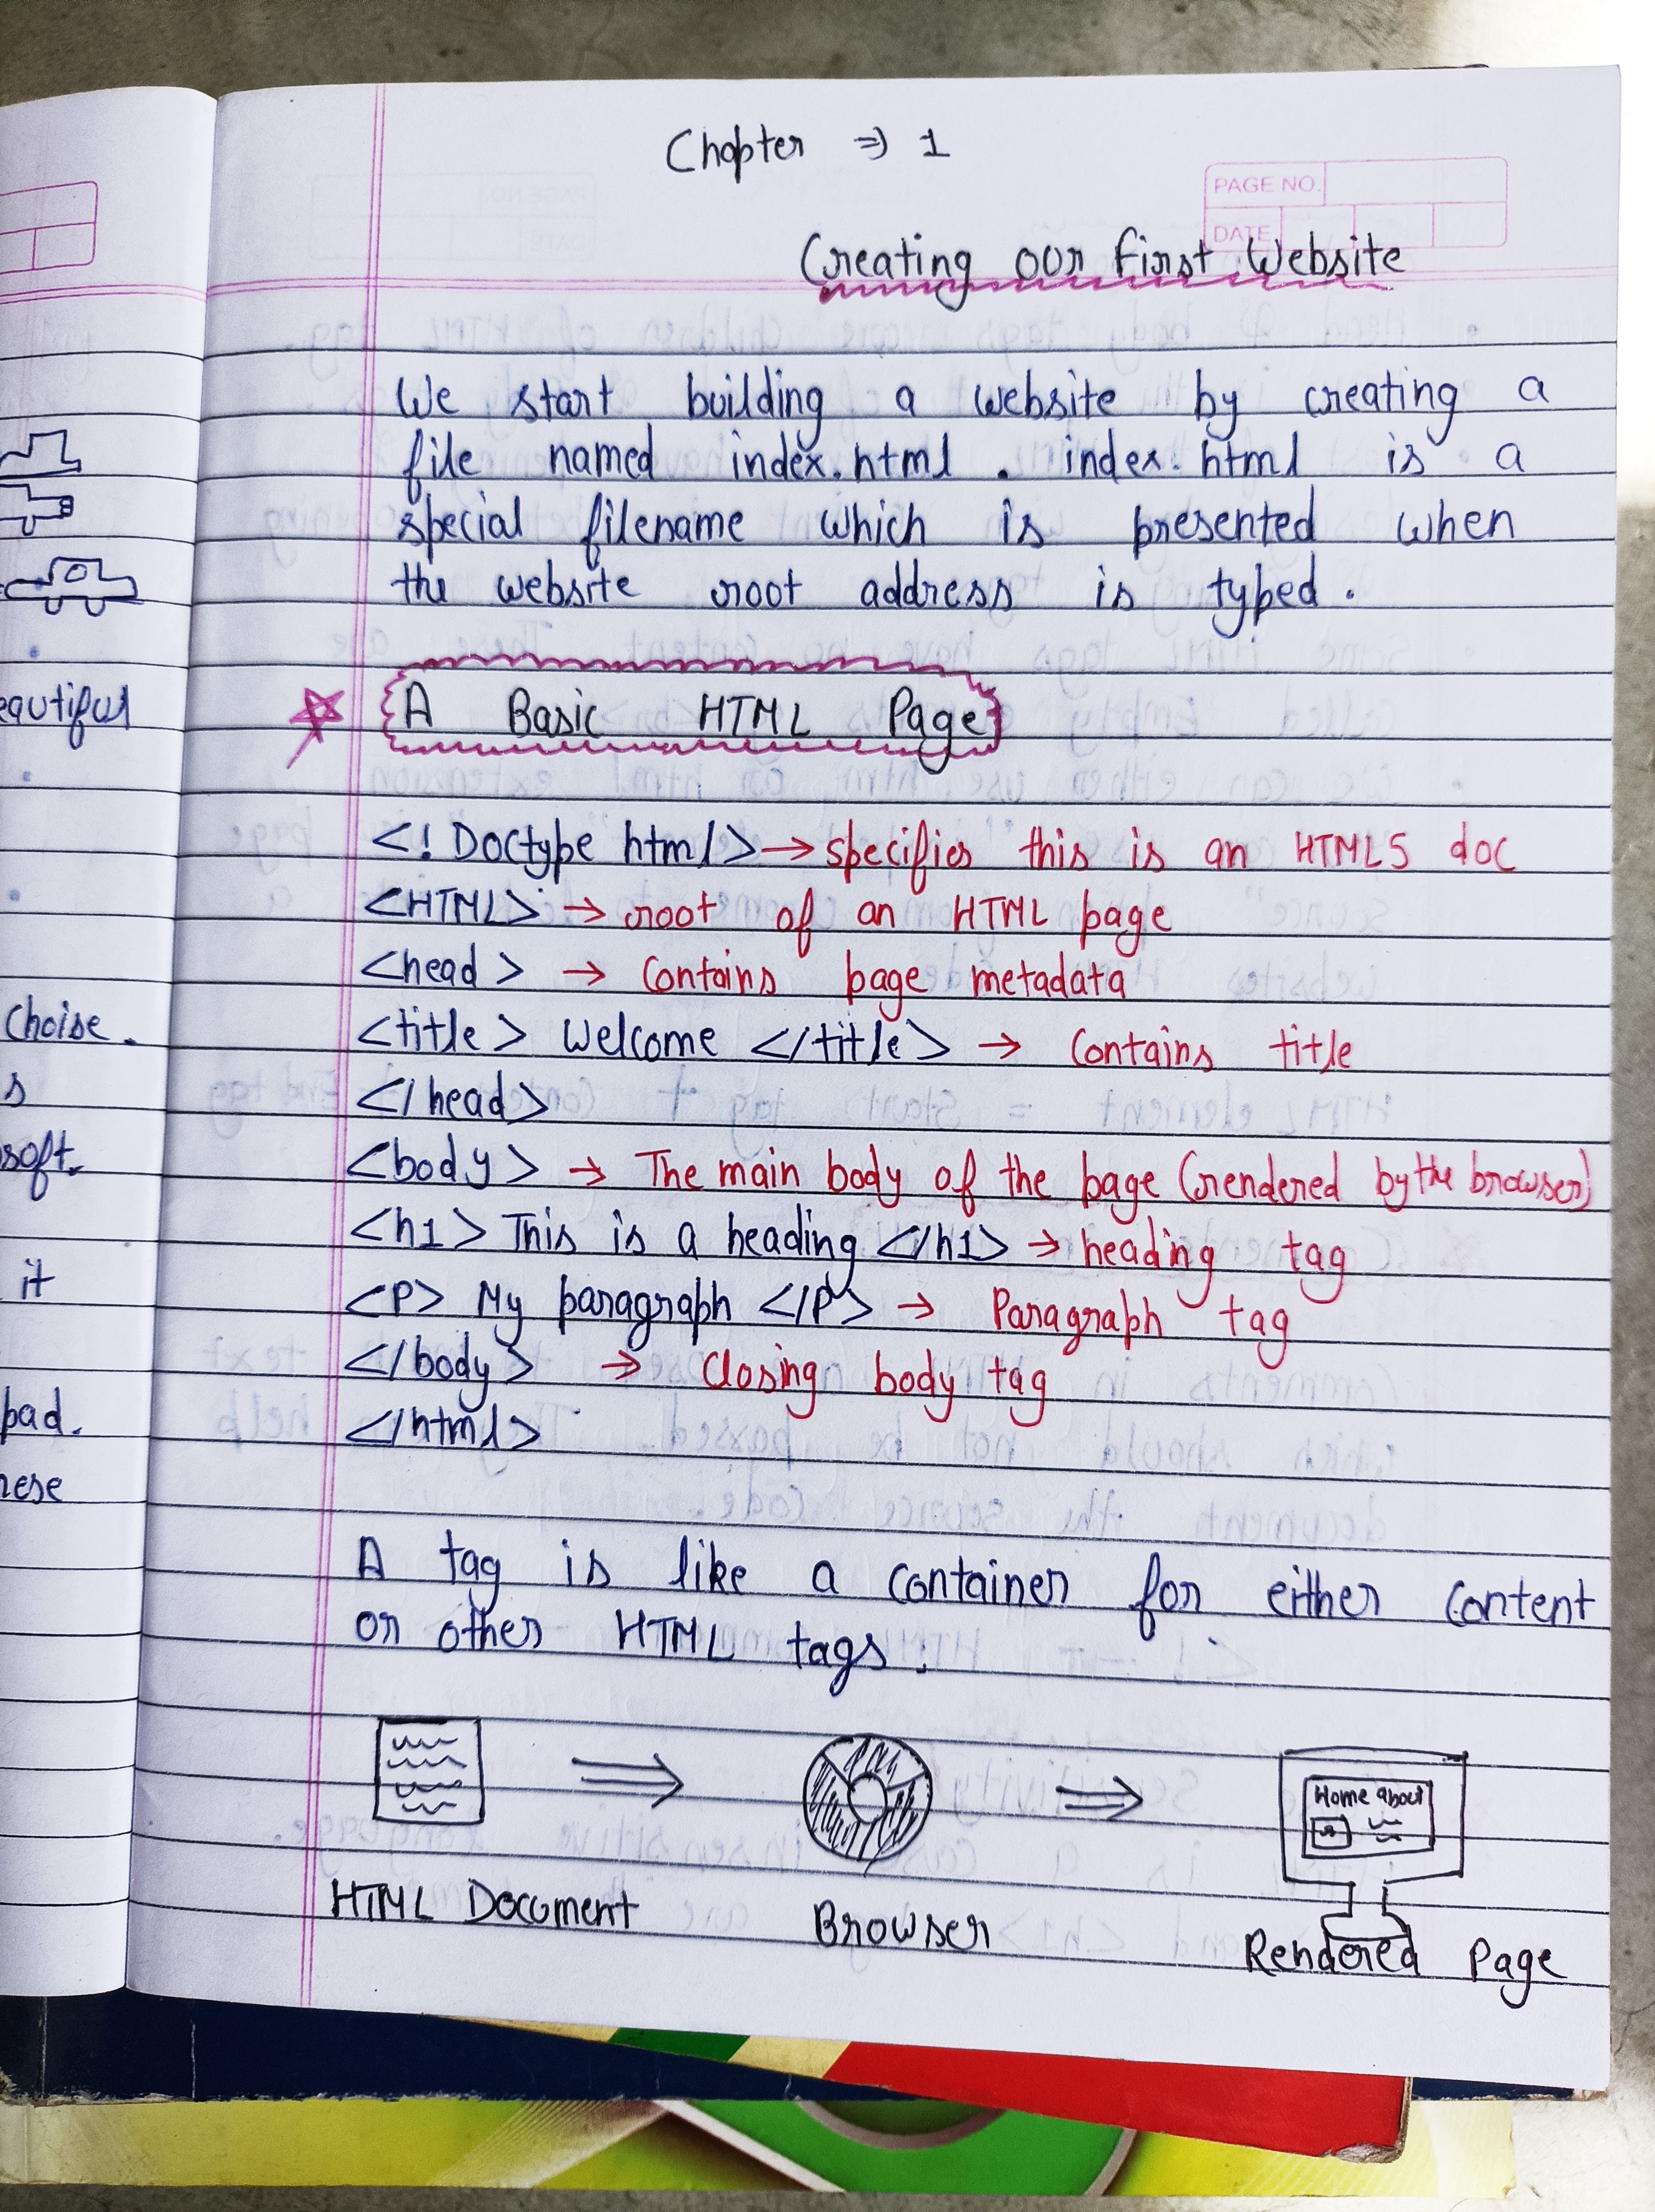 Chapter ⇒ 1
PAGE NO.
DATE
Creating our first Website
We start building a website by creating a
file named index.html . index.html is a
special filename which is presented when
the website root address is typed .
A Basic HTML Page
<! Doctype html> → specifies this is an HTML5 doc
<HTML> → root of an HTML page
<head> → Contains page metadata
<title> Welcome </title> → Contains title
</head>
<body> → The main body of the page (rendered by the browser)
<h1> This is a heading </h1> → heading tag
<P> My paragraph </P> → Paragraph tag
</body> → Closing body tag
</html>
A tag is like a container for either content
or other HTML tags .
Home about
HTML Document
Browser
Rendered Page
eautiful
Choise.
s
soft.
it
pad.
hese